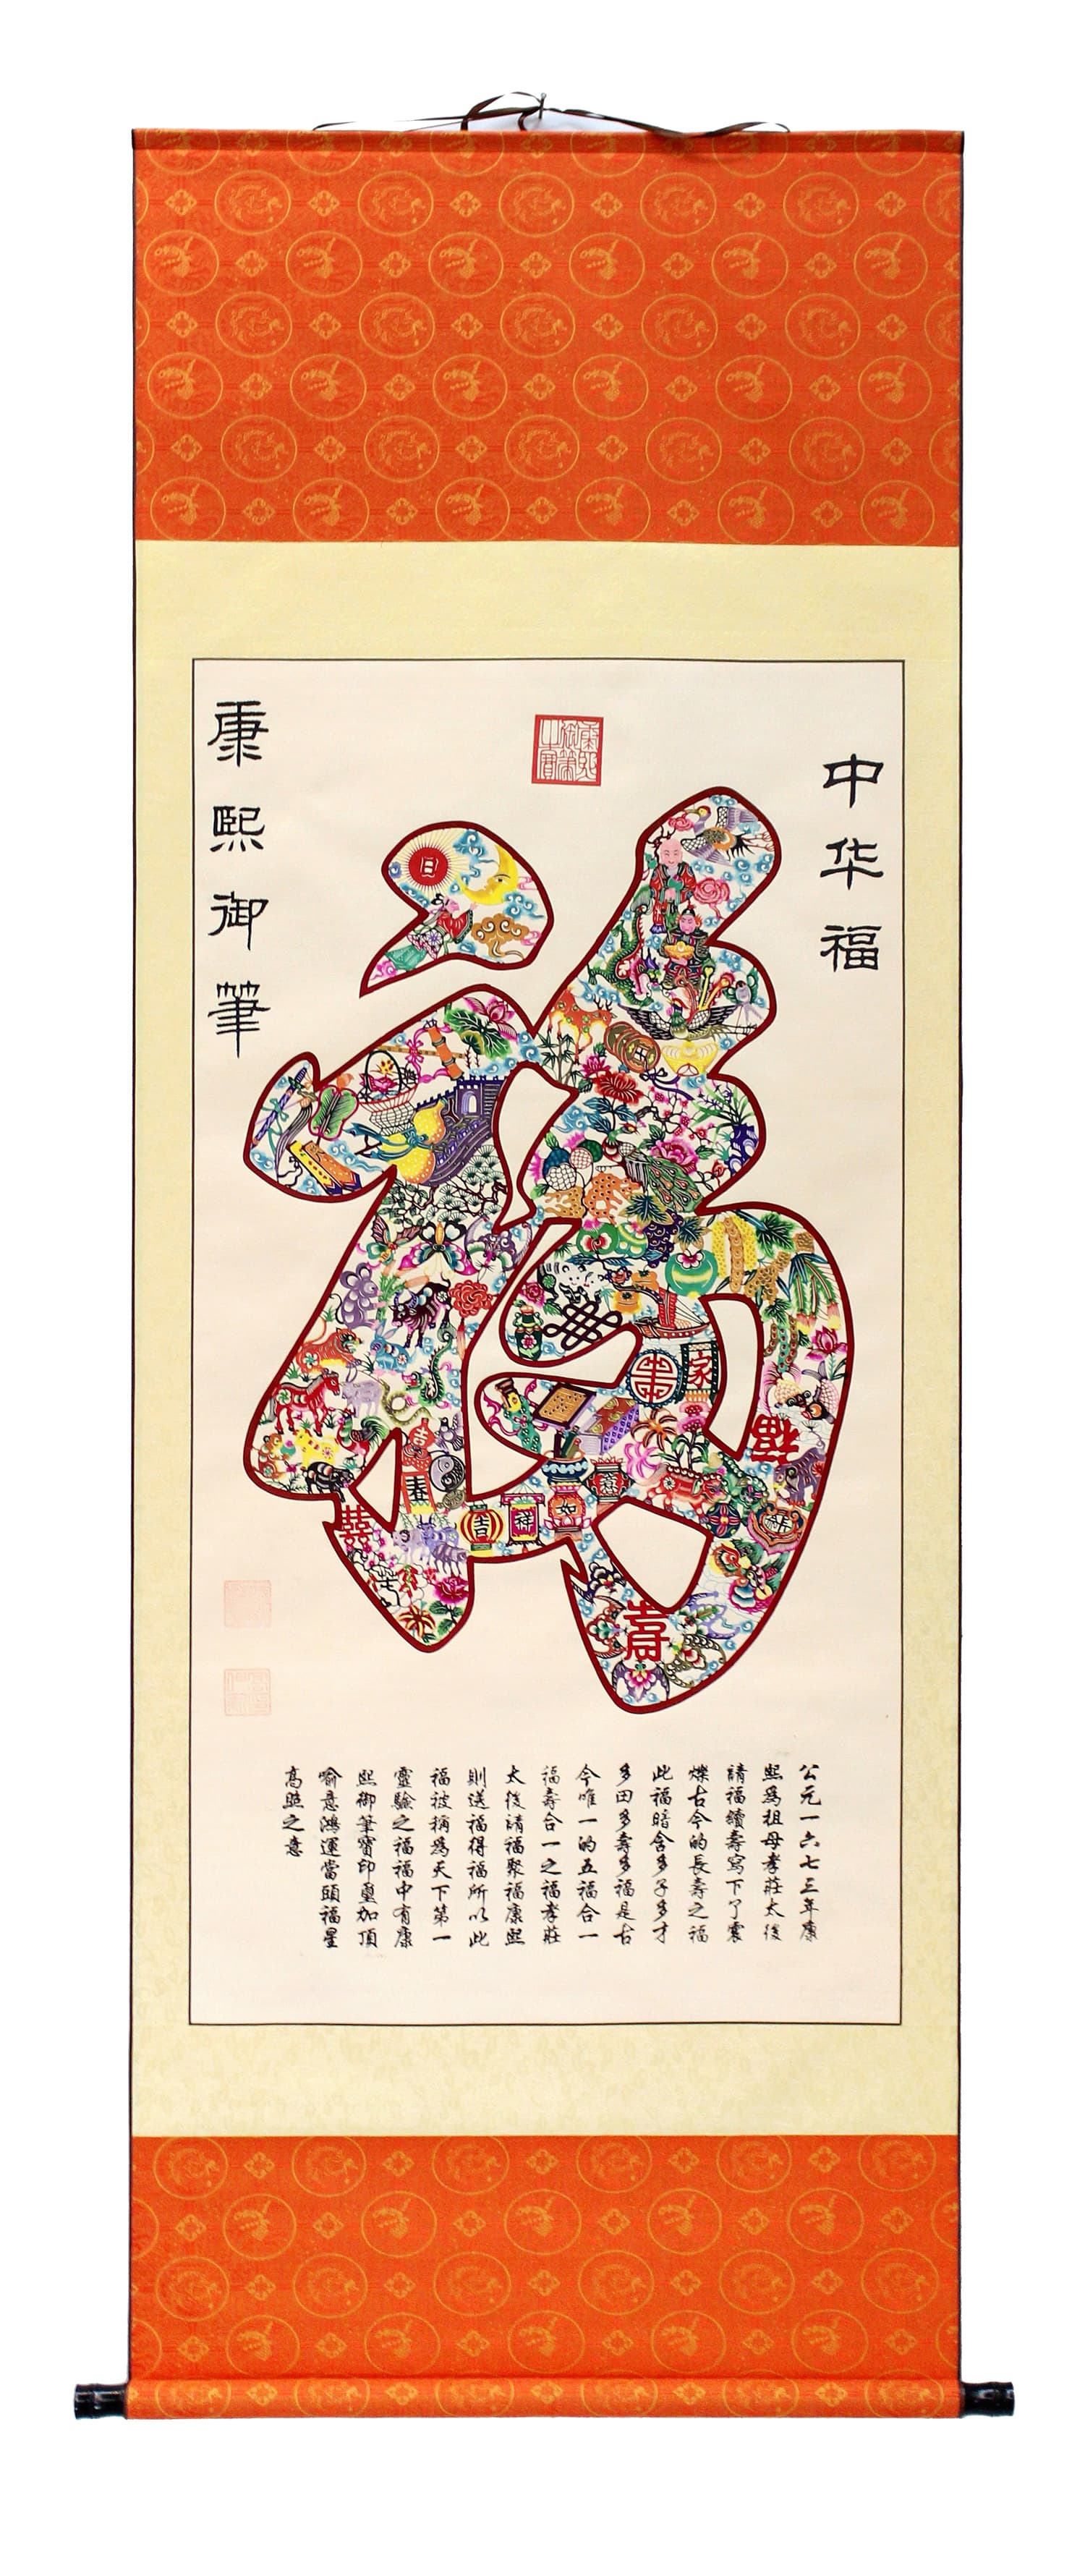 中华福
康熙御筆
康熙御筆之寶
日
家
吉
春
吉
祥
如
意
囍
壽
公元一六七三年康
熙為祖母孝莊太後
請福續壽寫下了震
爍古今的長壽之福
此福暗含多子多才
多田多壽多福是古
今唯一的五福合一
福壽合一之福孝莊
太後請福聚福康熙
則送福得福所以此
福被稱為天下第一
靈驗之福福中有康
熙御筆寶印璽加頂
喻意鴻運當頭福星
高照之意